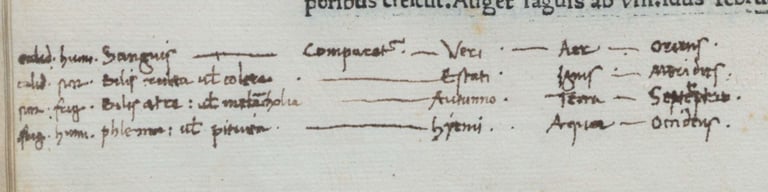 poribus crescut. Auget saguis ab viii. idus febru
calid. hum. Sanguis — Comparat᷑ — Veri — Aer — Oriens.
calid. sicc. Bilis rubea ul̃ colera — Estati Ignis — Meridies.
sicc. frig. Bilis atra: ul̃ melãcholia — Autunno. Terra — Septẽtrio.
frig. hum. phlema: ul̃ pituita. — hyemi. Aqua — Occidens.